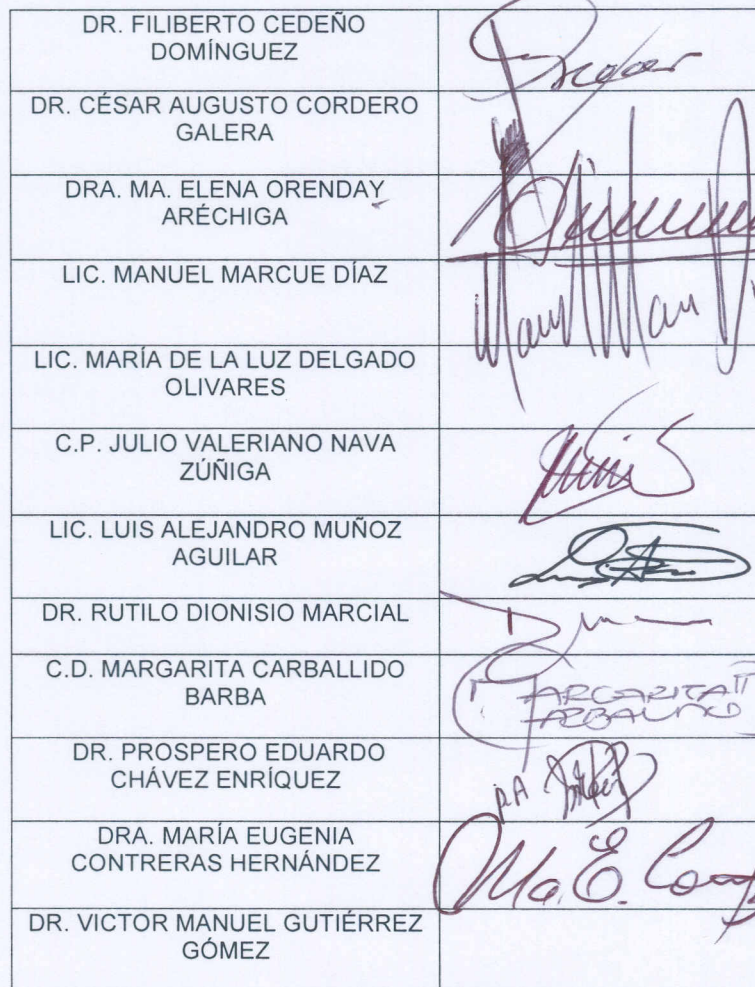 DR. FILIBERTO CEDEÑO
DOMÍNGUEZ
DR. CÉSAR AUGUSTO CORDERO
GALERA
DRA. MA. ELENA ORENDAY
ARÉCHIGA
LIC. MANUEL MARCUE DÍAZ
LIC. MARÍA DE LA LUZ DELGADO
OLIVARES
C.P. JULIO VALERIANO NAVA
ZÚÑIGA
LIC. LUIS ALEJANDRO MUÑOZ
AGUILAR
DR. RUTILO DIONISIO MARCIAL
C.D. MARGARITA CARBALLIDO
BARBA
DR. PROSPERO EDUARDO
CHÁVEZ ENRÍQUEZ
P.A
DRA. MARÍA EUGENIA
CONTRERAS HERNÁNDEZ
Ma. E.
DR. VICTOR MANUEL GUTIÉRREZ
GÓMEZ